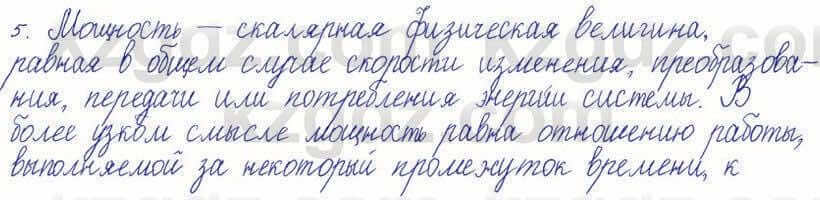 5. Мощность – скалярная физическая величина,
равная в общем случае скорости изменения, преобразова-
ния, передачи или потребления энергии системы. В
более узком смысле мощность равна отношению работы,
выполняемой за некоторый промежуток времени, к